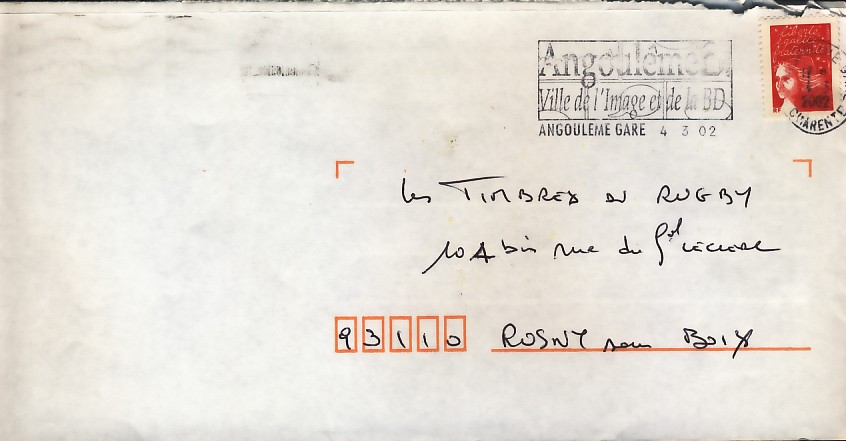 Angoulême
Ville de l'Image et de la BD
ANGOULEME GARE 4 3 02
Liberté
égalité
fraternité
2002
CHARENTE
Les TIMBRES DU RUGBY
104 bis rue du Gal LECLERC
93110 ROSNY sous BOIS